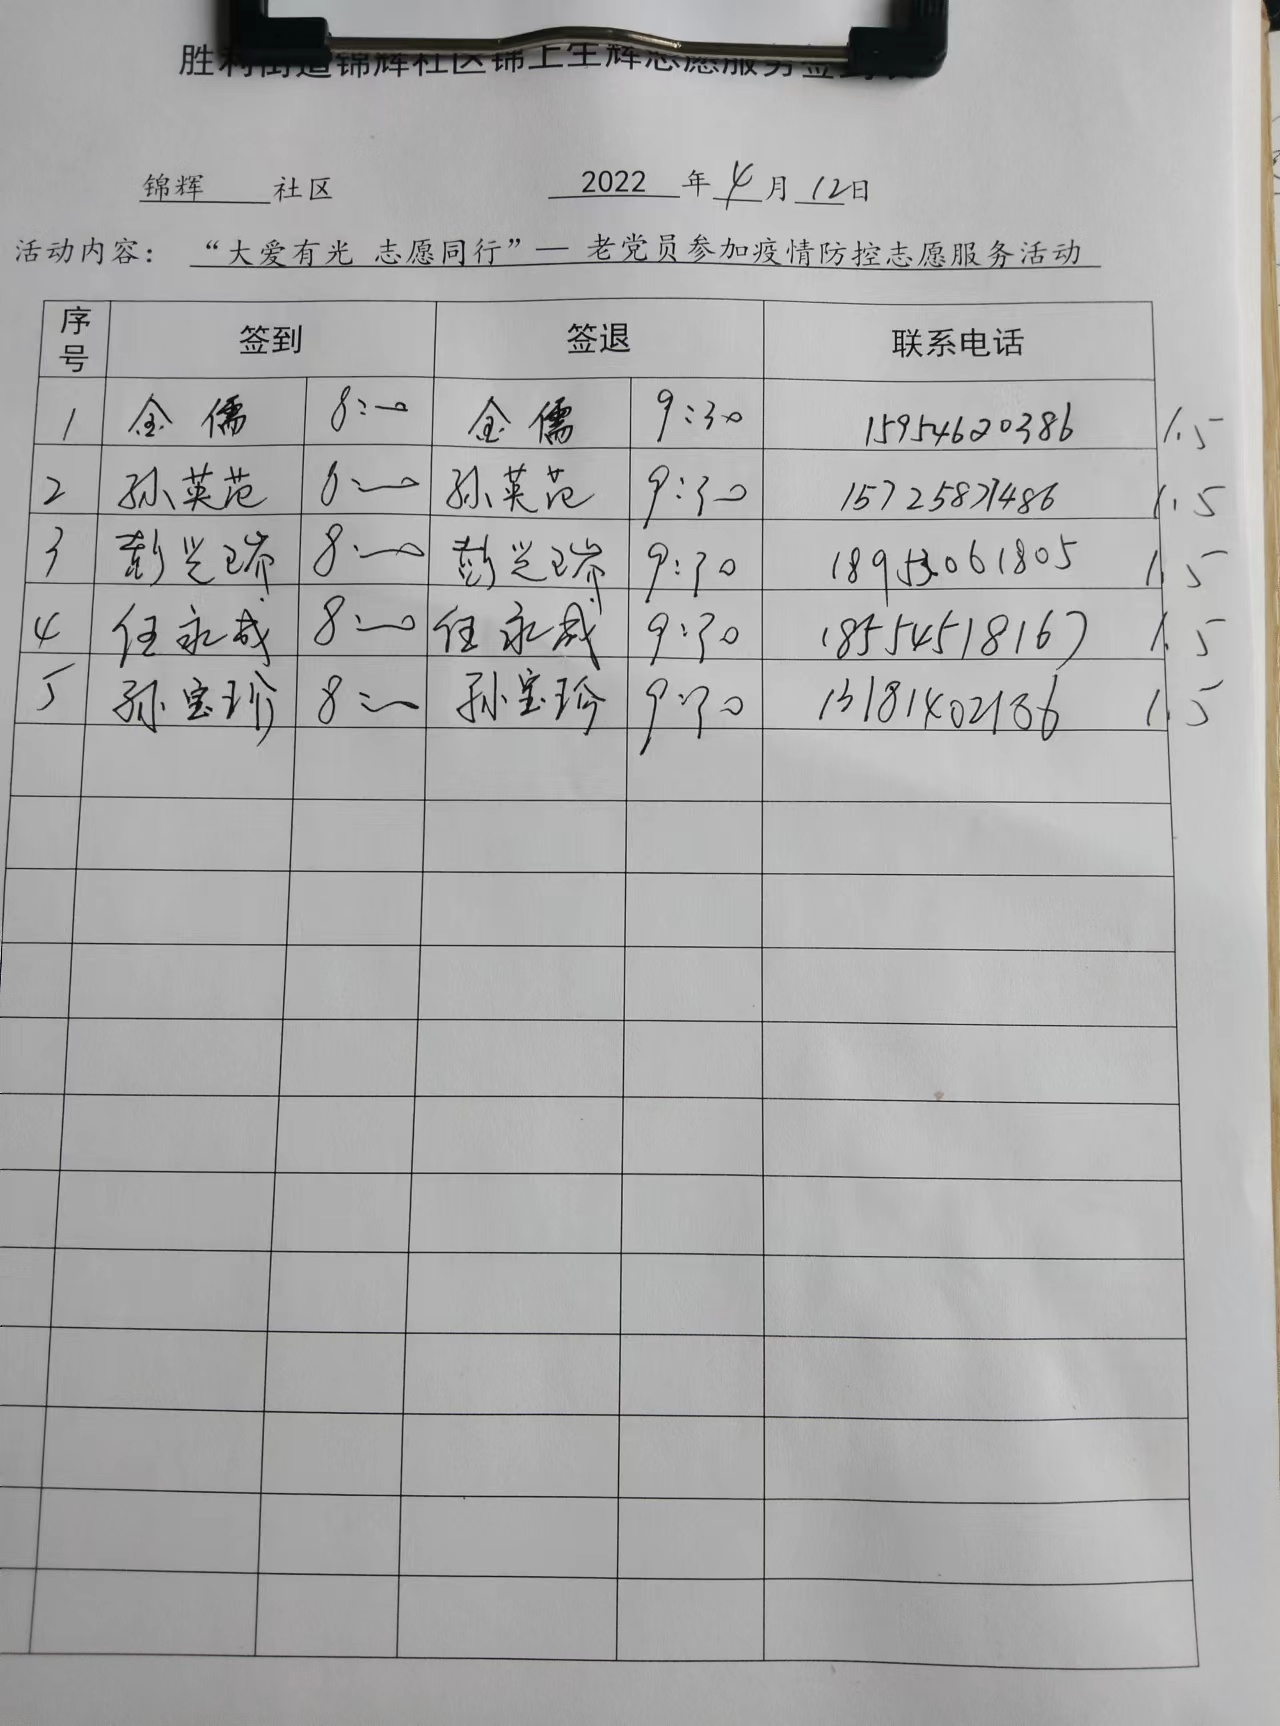 胜利街道锦辉社区锦上生辉志愿服务签到表
锦辉 社区 2022 年 4 月 12 日
活动内容： “大爱有光 志愿同行”— 老党员参加疫情防控志愿服务活动
序号 签到 签退 联系电话
1 金儒 8:00 金儒 9:30 15954620386 1.5
2 孙英范 8:00 孙英范 9:30 15725871486 1.5
3 彭兰瑞 8:00 彭兰瑞 9:30 18953061805 1.5
4 任永成 8:00 任永成 9:30 18554518167 1.5
5 孙宝珍 8:00 孙宝珍 9:30 13181402136 1.5